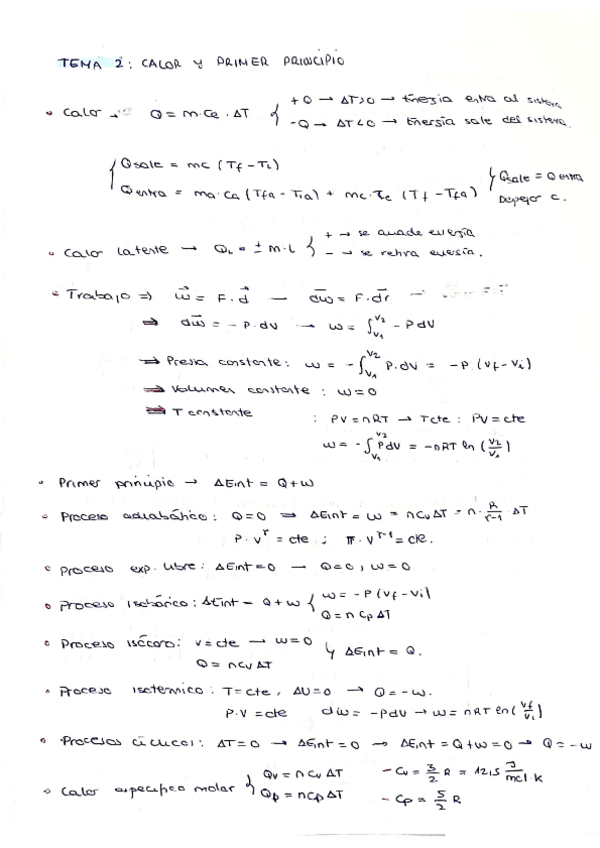 TEMA 2: CALOR Y PRIMER PRINCIPIO
• Calor → Q = m·Ce·ΔT { +Q → ΔT>0 → Energía entra al sistema
-Q → ΔT<0 → Energía sale del sistema.
{ Qsale = mc (Tf - Ti)
Qentra = ma·ca (Tfa - Tia) + mc·Tc (Tf - Tfa) } Qsale = Qentra
Despejar c.
• Calor latente → QL = ± m·L { + → se añade energía
- → se retira energía.
• Trabajo ⇒ w⃗ = F·d⃗ — dw⃗ = F·dr⃗
⇒ dw⃗ = -P·dV → w = ∫V1^V2 -PdV
⇒ Presión constante: w = -∫V1^V2 P·dV = -P(Vf-Vi)
⇒ Volumen constante: w=0
⇒ T constante : PV=nRT → Tcte: PV=cte
w = -∫V1^V2 PdV = -nRT ln(V2/V1)
• Primer principio → ΔEint = Q+w
• Proceso adiabático: Q=0 ⇒ ΔEint = w = nCvΔT = n·R/r-1 ΔT
P·V^r = cte ; T·V^r-1 = cte.
• Proceso exp. libre: ΔEint=0 → Q=0, w=0
• Proceso isobárico: ΔEint = Q+w { w = -P(Vf-Vi)
Q = n Cp ΔT
• Proceso isócoro: V=cte → w=0
Q = nCvΔT } ΔEint = Q.
• Proceso isotérmico: T=cte, ΔU=0 → Q=-w.
P·V=cte dw = -PdV → w = nRT ln(Vf/Vi)
• Procesos cíclicos: ΔT=0 → ΔEint=0 → ΔEint = Q+w=0 → Q=-w
• Calor específico molar { Qv = n Cv ΔT - Cv = 3/2 R = 12,5 J/mol·K
Qp = nCpΔT - Cp = 5/2 R